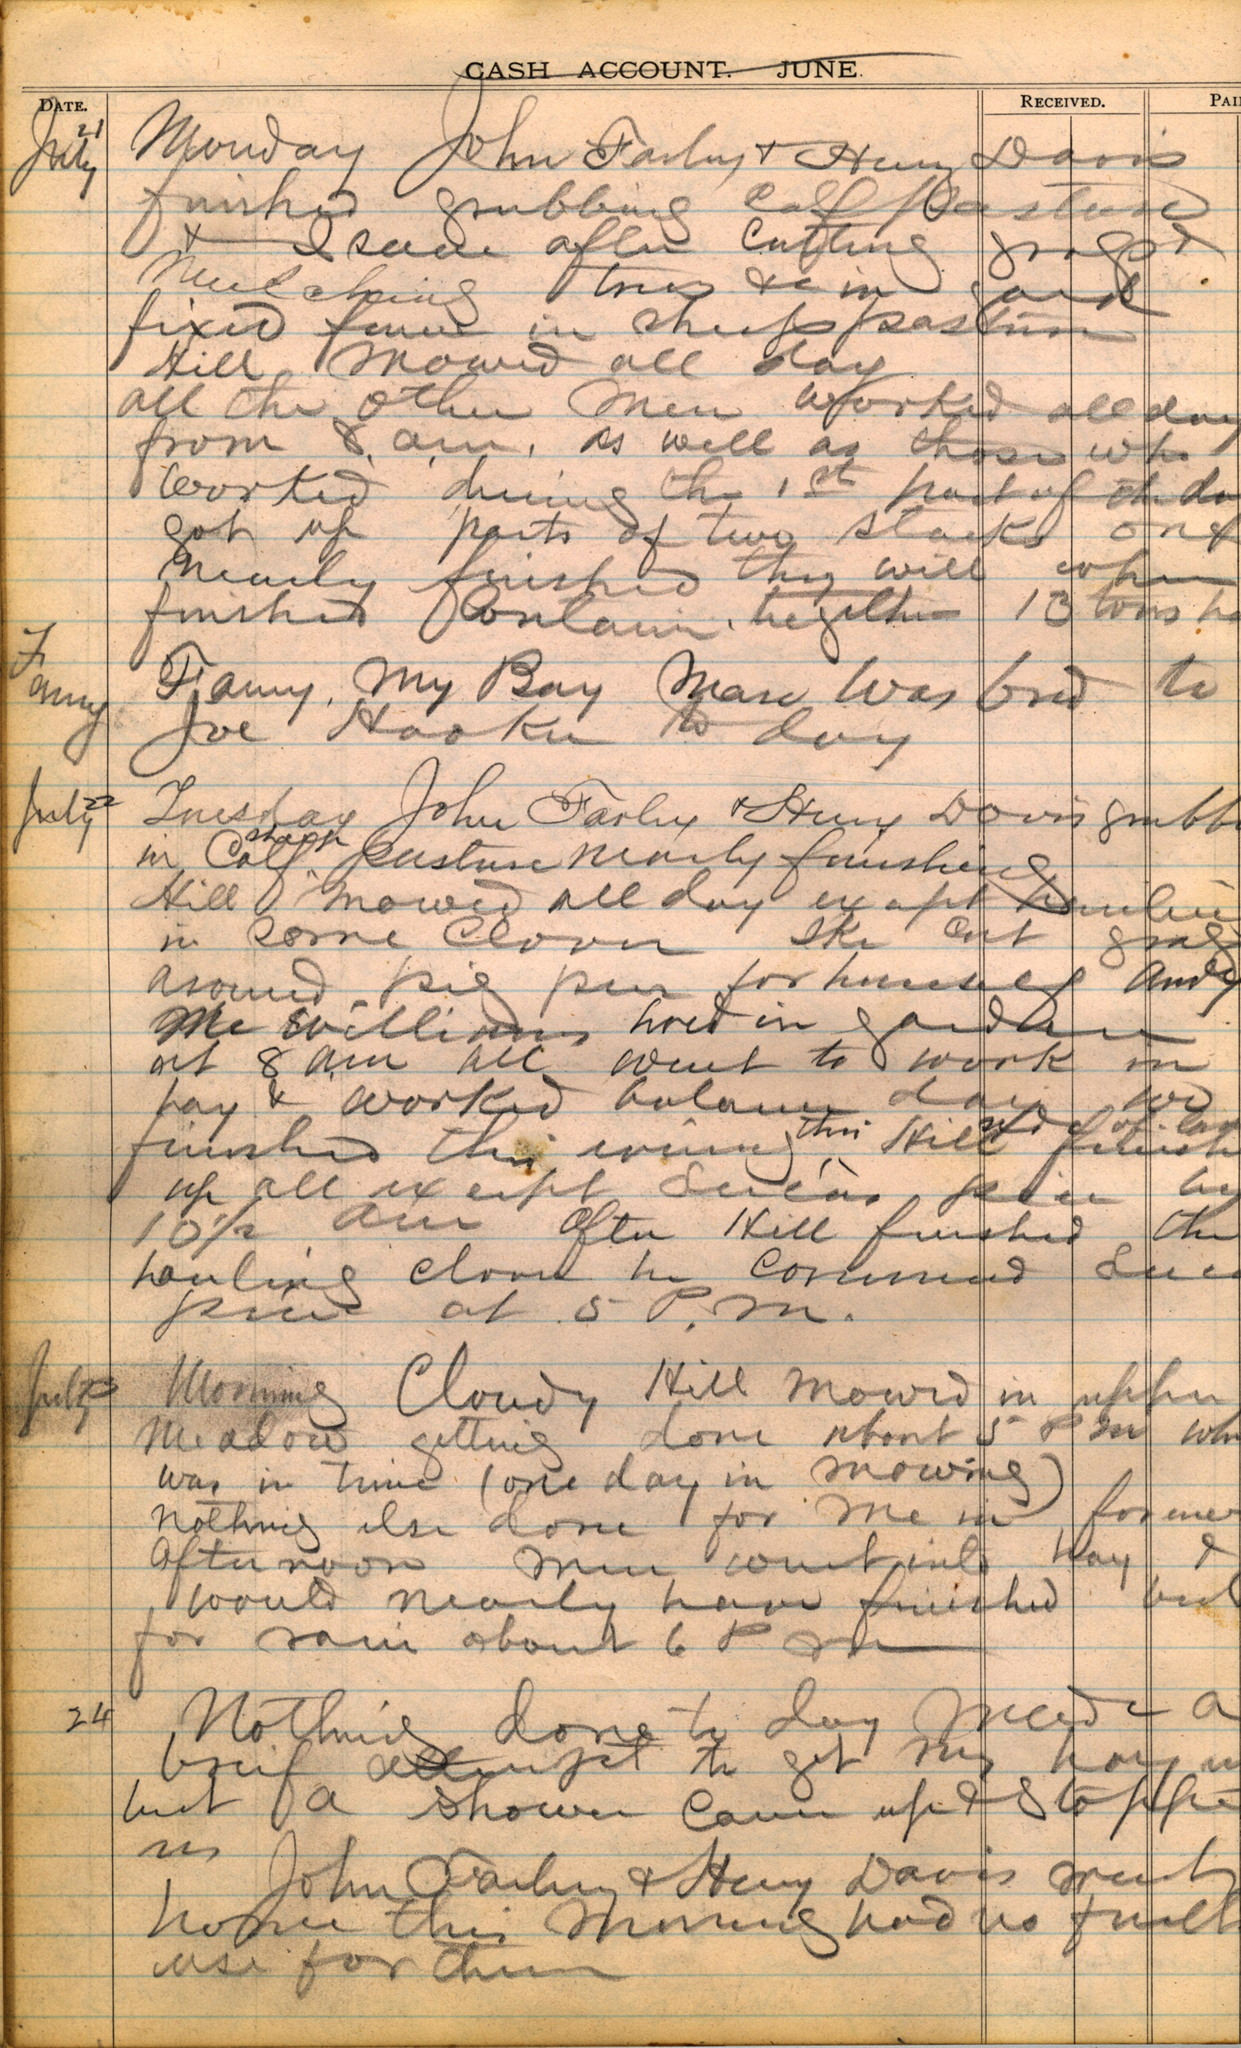 CASH ACCOUNT. JUNE
DATE. RECEIVED. PAI
July 21 Monday John Farley & Henry Davis
finished grubbing Calf pasture
& I saw after cutting grass &
Mulching trees &c in yard
fixed fence in sheep pasture
Hill Mowed all day
all the other Men worked all day
from 8 am. as well as those who
worked during the 1st part of the da
got up parts of two stacks one
nearly finished they will when
finished Contain together 13 tons ha
Fanny Fanny, My Bay Mare was bred to
Joe Hooker to day
July 22 Tuesday John Farley & Henry Davis grubb
in Calf sheep pasture nearly finishing
Hill Mowed all day except hauling
in some Clover Ike Cut grass
around pig pen for himself Andy
Mc Williams hoed in garden
at 8 am all went to work in
hay & worked balance day
finished this evening this Hill finish
up all except piece by
10 1/2 am After Hill finished the
hauling clover he Commenced
piece at 5 P. M.
July 23 Morning Cloudy Hill Mowed in upper
Meadow getting done about 5 P M wh
was in time (one day in mowing)
Nothing else done for me in forenoon
Afternoon men went into hay &
would nearly have finished but
for rain about 6 P M
24 Nothing done to day Made a
brief attempt to get my hay in
but a shower Came up & stoppe
us
John Farley & Henry Davis went
home this Morning had no furth
use for them